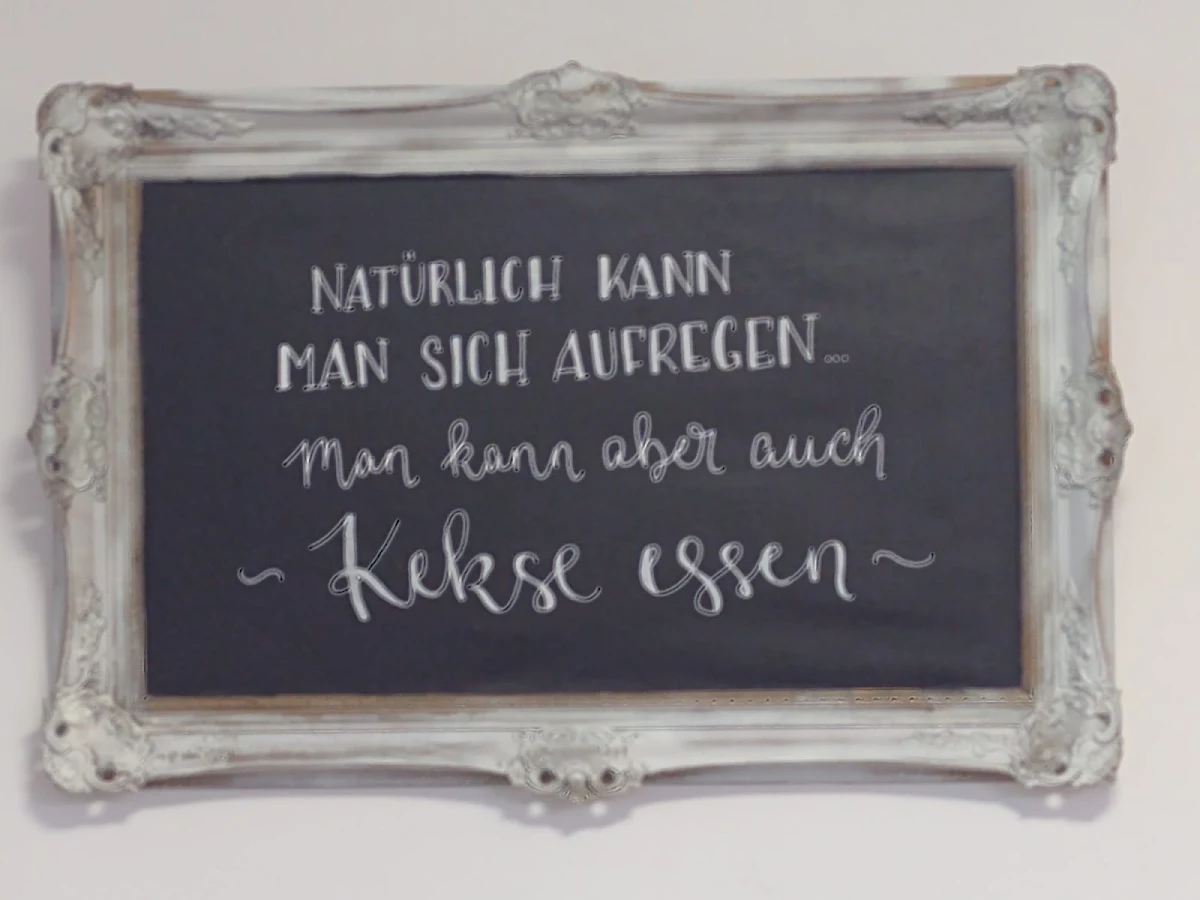 NATÜRLICH KANN
MAN SICH AUFREGEN...
Man kann aber auch
~ Kekse essen ~